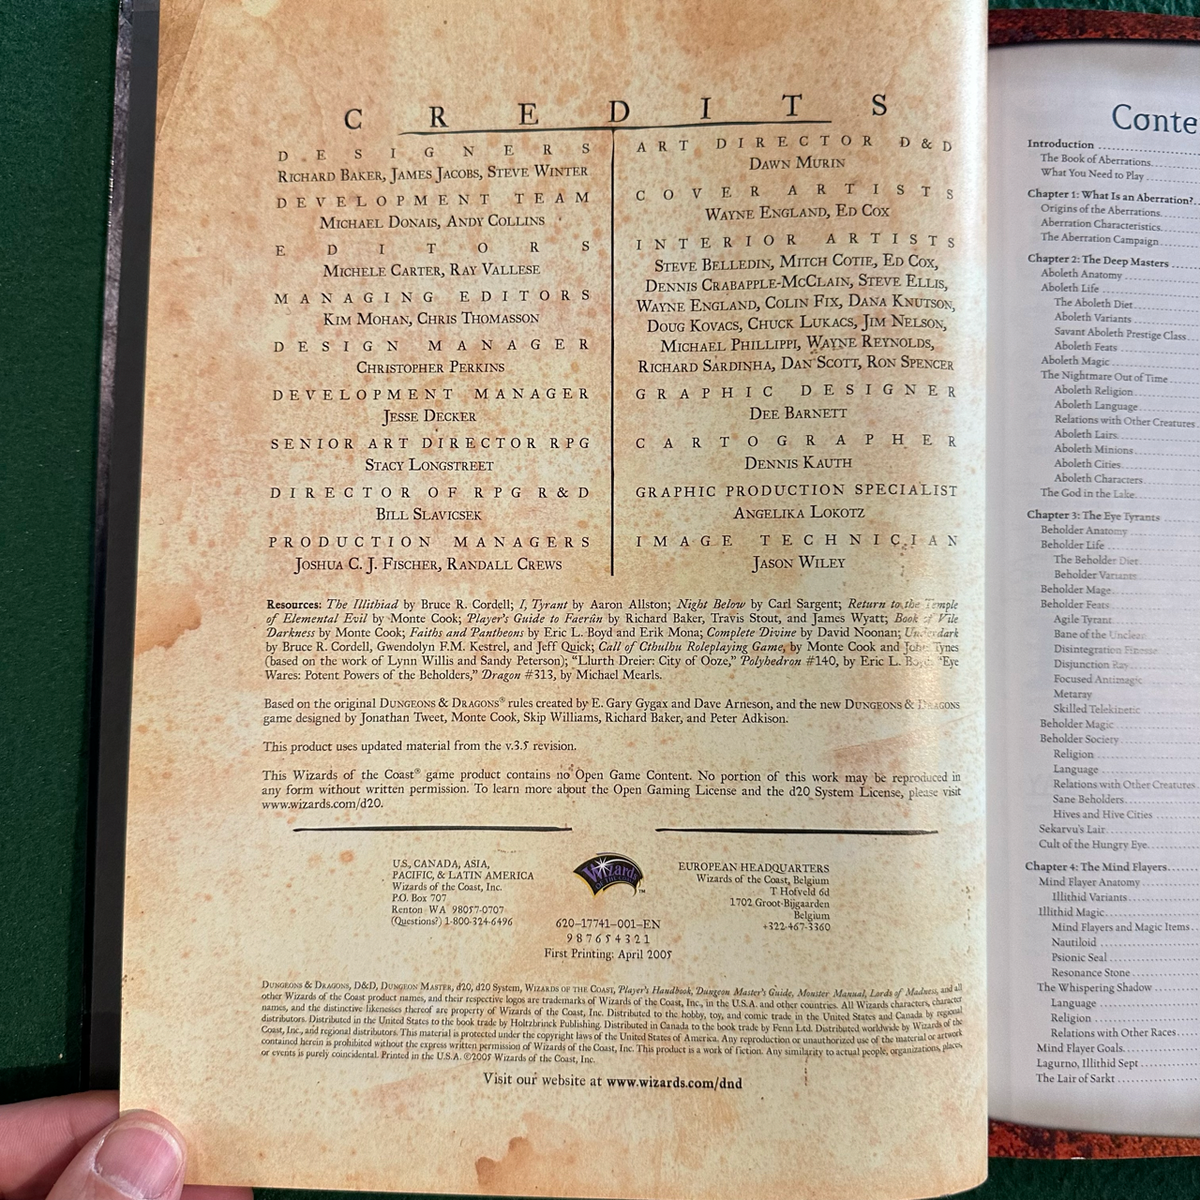 CREDITS
DESIGNERS
RICHARD BAKER, JAMES JACOBS, STEVE WINTER
DEVELOPMENT TEAM
MICHAEL DONAIS, ANDY COLLINS
EDITORS
MICHELE CARTER, RAY VALLESE
MANAGING EDITORS
KIM MOHAN, CHRIS THOMASSON
DESIGN MANAGER
CHRISTOPHER PERKINS
DEVELOPMENT MANAGER
JESSE DECKER
SENIOR ART DIRECTOR RPG
STACY LONGSTREET
DIRECTOR OF RPG R&D
BILL SLAVICSEK
PRODUCTION MANAGERS
JOSHUA C. J. FISCHER, RANDALL CREWS
ART DIRECTOR D&D
DAWN MURIN
COVER ARTISTS
WAYNE ENGLAND, ED COX
INTERIOR ARTISTS
STEVE BELLEDIN, MITCH COTIE, ED COX,
DENNIS CRABAPPLE-MCCLAIN, STEVE ELLIS,
WAYNE ENGLAND, COLIN FIX, DANA KNUTSON,
DOUG KOVACS, CHUCK LUKACS, JIM NELSON,
MICHAEL PHILLIPPI, WAYNE REYNOLDS,
RICHARD SARDINHA, DAN SCOTT, RON SPENCER
GRAPHIC DESIGNER
DEE BARNETT
CARTOGRAPHER
DENNIS KAUTH
GRAPHIC PRODUCTION SPECIALIST
ANGELIKA LOKOTZ
IMAGE TECHNICIAN
JASON WILEY
Resources: The Illithiad by Bruce R. Cordell; I, Tyrant by Aaron Allston; Night Below by Carl Sargent; Return to the Temple
of Elemental Evil by Monte Cook; Player's Guide to Faerûn by Richard Baker, Travis Stout, and James Wyatt; Book of Vile
Darkness by Monte Cook; Faiths and Pantheons by Eric L. Boyd and Erik Mona; Complete Divine by David Noonan; Underdark
by Bruce R. Cordell, Gwendolyn F.M. Kestrel, and Jeff Quick; Call of Cthulhu Roleplaying Game, by Monte Cook and John Tynes
(based on the work of Lynn Willis and Sandy Peterson); "Llurth Dreier: City of Ooze," Polyhedron #140, by Eric L. Boyd; "Eye
Wares: Potent Powers of the Beholders," Dragon #313, by Michael Mearls.
Based on the original DUNGEONS & DRAGONS® rules created by E. Gary Gygax and Dave Arneson, and the new DUNGEONS & DRAGONS
game designed by Jonathan Tweet, Monte Cook, Skip Williams, Richard Baker, and Peter Adkison.
This product uses updated material from the v.3.5 revision.
This Wizards of the Coast® game product contains no Open Game Content. No portion of this work may be reproduced in
any form without written permission. To learn more about the Open Gaming License and the d20 System License, please visit
www.wizards.com/d20.
U.S., CANADA, ASIA,
PACIFIC, & LATIN AMERICA
Wizards of the Coast, Inc.
P.O. Box 707
Renton WA 98057-0707
(Questions?) 1-800-324-6496
Wizards
OF THE COAST
™
620-17741-001-EN
9 8 7 6 5 4 3 2 1
First Printing: April 2005
EUROPEAN HEADQUARTERS
Wizards of the Coast, Belgium
T Hofveld 6d
1702 Groot-Bijgaarden
Belgium
+322-467-3360
DUNGEONS & DRAGONS, D&D, DUNGEON MASTER, d20, d20 System, WIZARDS OF THE COAST, Player's Handbook, Dungeon Master's Guide, Monster Manual, Lords of Madness, and all
other Wizards of the Coast product names, and their respective logos are trademarks of Wizards of the Coast, Inc., in the U.S.A. and other countries. All Wizards characters, character
names, and the distinctive likenesses thereof are property of Wizards of the Coast, Inc. Distributed to the hobby, toy, and comic trade in the United States and Canada by regional
distributors. Distributed in the United States to the book trade by Holtzbrinck Publishing. Distributed in Canada to the book trade by Fenn Ltd. Distributed worldwide by Wizards of the
Coast, Inc., and regional distributors. This material is protected under the copyright laws of the United States of America. Any reproduction or unauthorized use of the material or artwork
contained herein is prohibited without the express written permission of Wizards of the Coast, Inc. This product is a work of fiction. Any similarity to actual people, organizations, places,
or events is purely coincidental. Printed in the U.S.A. ©2005 Wizards of the Coast, Inc.
Visit our website at www.wizards.com/dnd
Conte
Introduction
The Book of Aberrations
What You Need to Play
Chapter 1: What Is an Aberration?
Origins of the Aberrations
Aberration Characteristics
The Aberration Campaign
Chapter 2: The Deep Masters
Aboleth Anatomy
Aboleth Life
The Aboleth Diet
Aboleth Variants
Savant Aboleth Prestige Class
Aboleth Feats
Aboleth Magic
The Nightmare Out of Time
Aboleth Religion
Aboleth Language
Relations with Other Creatures
Aboleth Lairs
Aboleth Minions
Aboleth Cities
Aboleth Characters
The God in the Lake
Chapter 3: The Eye Tyrants
Beholder Anatomy
Beholder Life
The Beholder Diet
Beholder Variants
Beholder Mage
Beholder Feats
Agile Tyrant
Bane of the Unclean
Disintegration Finesse
Disjunction Ray
Focused Antimagic
Metaray
Skilled Telekinetic
Beholder Magic
Beholder Society
Religion
Language
Relations with Other Creatures
Sane Beholders
Hives and Hive Cities
Sekarvu's Lair
Cult of the Hungry Eye
Chapter 4: The Mind Flayers
Mind Flayer Anatomy
Illithid Variants
Illithid Magic
Mind Flayers and Magic Items
Nautiloid
Psionic Seal
Resonance Stone
The Whispering Shadow
Language
Religion
Relations with Other Races
Mind Flayer Goals
Lagurno, Illithid Sept
The Lair of Sarkt